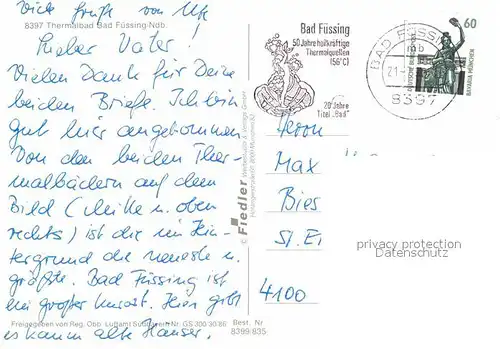 Viele Grüße von Ulf
8397 Thermalbad Bad Füssing-Ndb.
Lieber Vater!
Vielen Dank für Deine
beiden Briefe. Ich bin
gut hier angekommen
Von den beiden Ther-
malbädern auf dem
Bild (Mitte u. oben
rechts) ist die im Hin-
tergrund die neueste u.
größte. Bad Füssing ist
ein großer Kurort. Hier gibt
es kaum alte Häuser.
Freigegeben von Reg. Obb. Luftamt Südbayern Nr. GS 300/30/86
Best. Nr
8399/835
© Fiedler
Bad Füssing
50 Jahre heilkräftige
Thermalquellen
(56°C)
20 Jahre
Titel „Bad“
BAD FÜSSING
mb
21.
8397
60
DEUTSCHE BUNDESPOST
BAVARIA MÜNCHEN
Herrn
Max
Bies
4100
privacy protection
Datenschutz